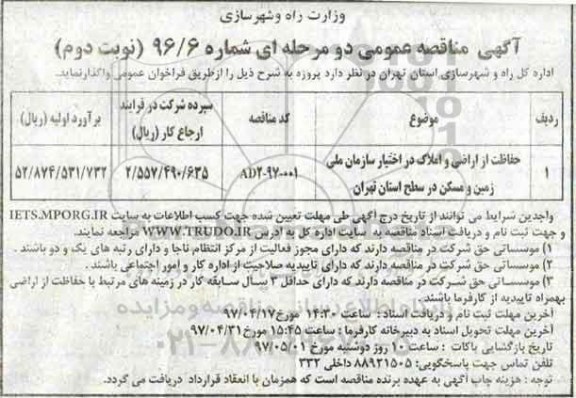 وزارت راه وشهرسازی
آگهی مناقصه عمومی دو مرحله ای شماره ۹۶/۶ (نوبت دوم)
اداره کل راه و شهرسازی استان تهران در نظر دارد پروژه به شرح ذیل را ازطریق فراخوان عمومی واگذارنماید.
ردیف
موضوع
کد مناقصه
سپرده شرکت در فرایند ارجاع کار (ریال)
برآورد اولیه (ریال)
۱
حفاظت از اراضی و املاک در اختیار سازمان ملی زمین و مسکن در سطح استان تهران
AD2-97-001
۲/۵۵۷/۴۹۰/۶۳۵
۵۲/۸۷۴/۵۳۱/۷۳۲
واجدین شرایط می توانند از تاریخ درج آگهی طی مهلت تعیین شده جهت کسب اطلاعات به سایت IETS.MPORG.IR
و جهت ثبت نام و دریافت اسناد مناقصه به سایت اداره کل به آدرس WWW.TRUDO.IR مراجعه نمایند.
۱) موسساتی حق شرکت در مناقصه دارند که دارای مجوز فعالیت از مرکز انتظام ناجا و دارای رتبه های یک و دو باشند .
۲) موسساتی حق شرکت در مناقصه دارند که دارای تاییدیه صلاحیت از اداره کار و امور اجتماعی باشند .
۳) موسساتی حق شرکت در مناقصه دارند که دارای حداقل ۳ سال سابقه کار در زمینه های مرتبط با حفاظت از اراضی
بهمراه تاییدیه از کارفرما باشند.
آخرین مهلت ثبت نام و دریافت اسناد : ساعت ۱۴:۳۰ مورخ ۹۷/۰۴/۱۷
آخرین مهلت تحویل اسناد به دبیرخانه کارفرما : ساعت ۱۵:۴۵ مورخ ۹۷/۰۴/۳۱
تاریخ بازگشایی پاکات : ساعت ۱۰ روز دوشنبه مورخ ۹۷/۰۵/۰۱
تلفن تماس جهت پاسخگویی: ۸۸۹۲۱۵۰۵ داخلی ۳۳۲
توجه : هزینه چاپ آگهی به عهده برنده مناقصه است که همزمان با انعقاد قرارداد دریافت می گردد.